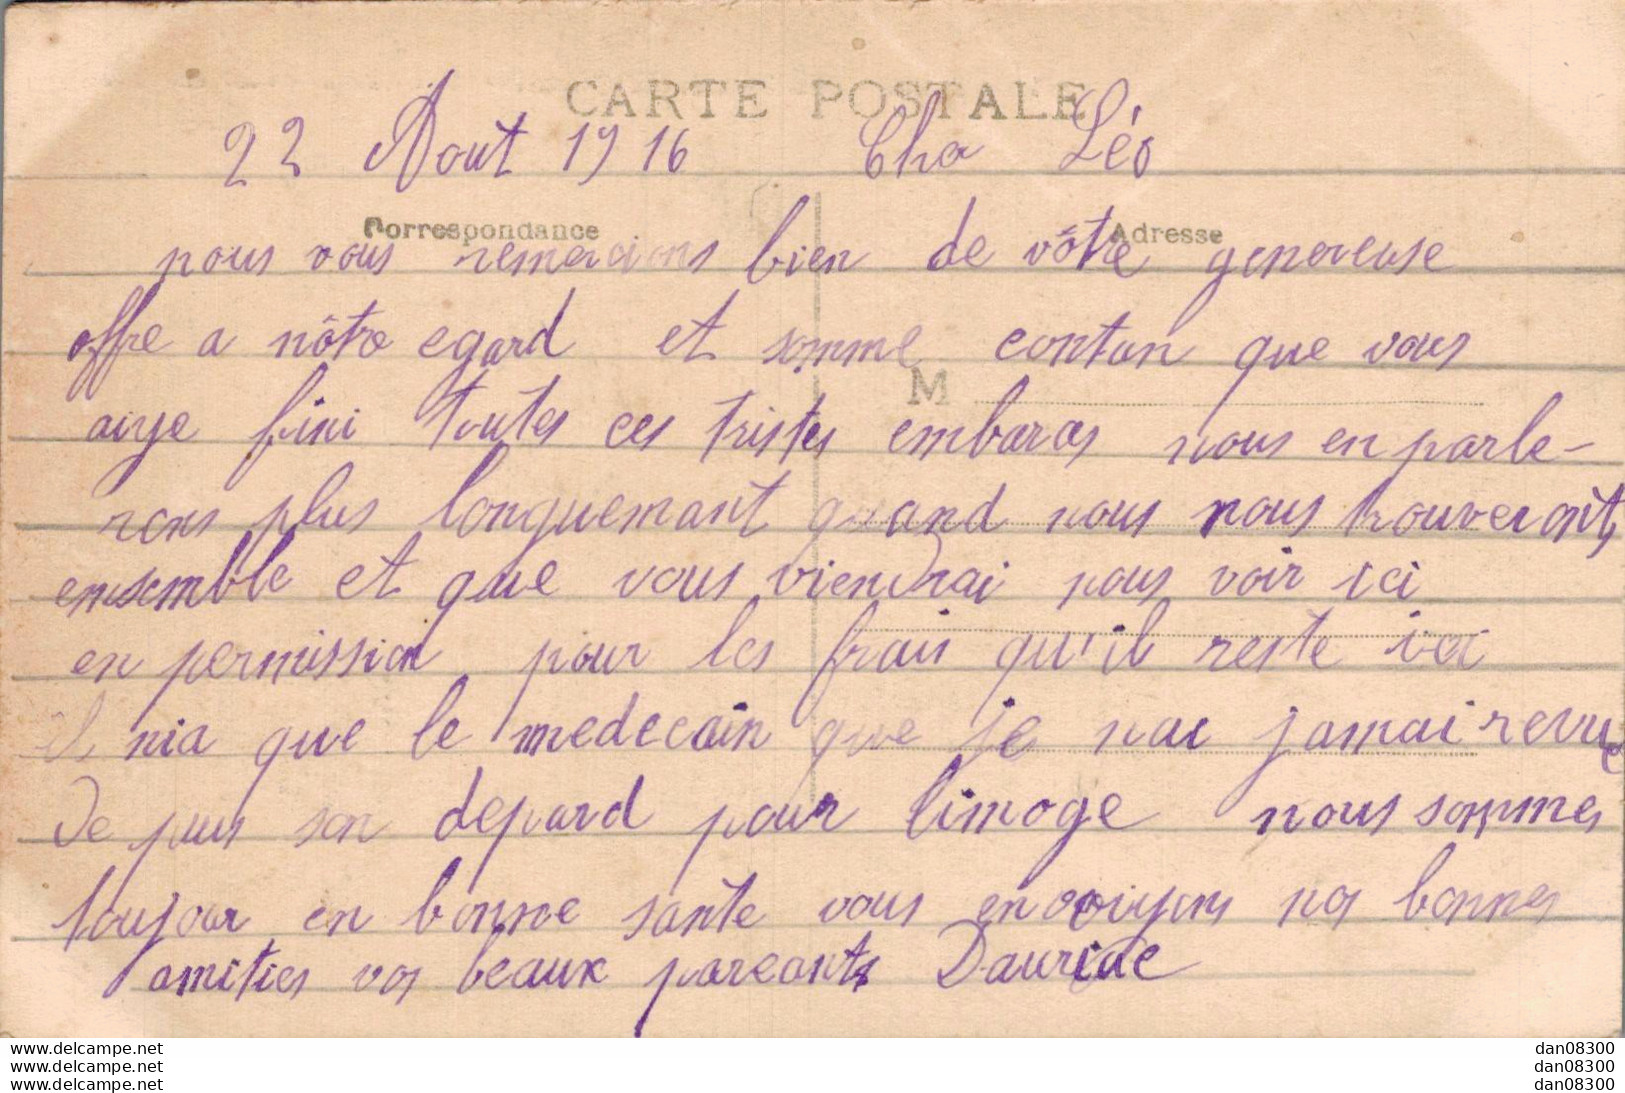 CARTE POSTALE
22 Aout 1916 Cher Léo
Correspondance Adresse
nous vous remercions bien de vôtre genereuse
offre a nôtre egard et somme contan que vous
M
aiye fini toutes ces tristes embaras nous en parle-
rons plus longuemant quand nous nous trouveront
ensemble et que vous viendrai nous voir ici
en permission pour les frais qu'il reste ici
il nia que le medecain que je nai jamai revu
de puis son depard pour limoge nous sommes
toujour en bonne sante vous envoiyons nos bonnes
amities vos beaux pareants Dauriac
www.delcampe.net dan08300
www.delcampe.net dan08300
www.delcampe.net dan08300